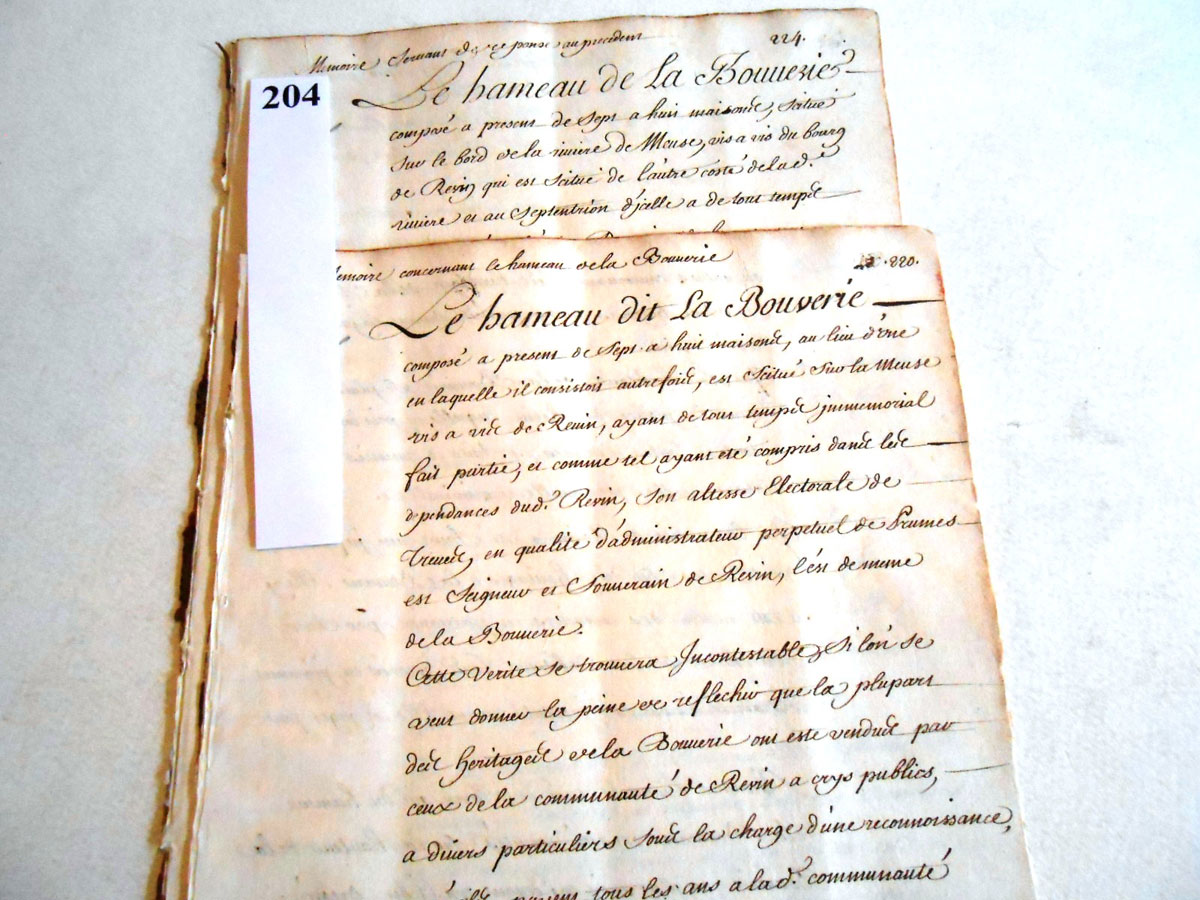 Memoire Servant de reponse au precedent
224.
204
Le hameau de la Bouverie
composé a present de Sept a huit maisons, scitué
sur le bord de la riviere de Meuse, vis a vis du bourg
de Revin qui est scitué de l'autre costé de lad.e
riviere et au Septentrion d'jcelle a de tout temps
Memoire concernant le hameau de la Bouverie
.220.
Le hameau dit La Bouverie
composé a present de Sept a huit maisons, au lieu d'une
en laquelle il consistoit autrefois, est Scitué Sur la Meuse
vis a vis de Revin, ayant de tout temps jmmemorial
fait partie, et comme tel ayant eté compris dans les
dependances dud. Revin, Son altesse Electorale de
Treves, en qualité d'administrateur perpetuel de Prumes
est Seigneur et Souverain de Revin, l'est de meme
de la Bouverie.
Cette Verite se trouvera Jncontestable, Si lon se
veut donner la peine de reflechir que la plupart
des heritages de la Bouverie ont esté vendus par
ceux de la communauté de Revin a crys publics,
a divers particuliers sous la charge d'une reconnoissance,
tous les ans a la d.e communauté